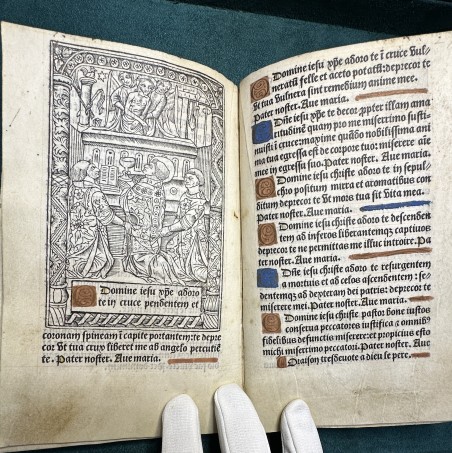 Domine iesu xp̄e adoro
te in cruce pendentem et
coronam spineam ī capite portantem: te depre
cor vt tua crux liberet me ab angelo percutiē
te. Pater noster. Aue maria.
Domine iesu xp̄e adoro te ī cruce vul-
neratū felle et aceto potatū: deprecor te
vt tua vulnera sint remedium anime mee.
Pater noster. Aue maria.
Dn̄e iesu xp̄e te deprecor ꝓpter illam ama
ritudinē quam pro me miserrimo susti-
nuisti ī cruce: maxime quādo nobilissima ani
ma tua egressa est de corpore tuo: miserere aīe
mee in egressu suo. Pater noster. Aue maria.
Domine iesu christe adoro te in sepul-
chro positum mirra et aromatibus con
ditum deprecor te vt mors tua sit vita mea.
Pater noster. Aue maria.
Domine iesu christe adoro te descenden
tem ad inferos liberantemqꝫ captiuos
deprecor te ne permittas me illuc introire. Pa
ter noster. Aue maria.
Dn̄e iesu christe adoro te resurgentem
a mortuis et ad celos ascendentem: se-
dentemqꝫ ad dexteram dei patris: deprecor te
miserere mei. Pater noster. Aue maria.
Domine iesu christe pastor bone iustos
conserua peccatores iustifica ⁊ omnibꝰ
fidelibus defunctis miserere: et propicius esto
michi miserrimo peccatori. Pater noster. Aue
maria. Oraison tresdeuote a dieu le pere.